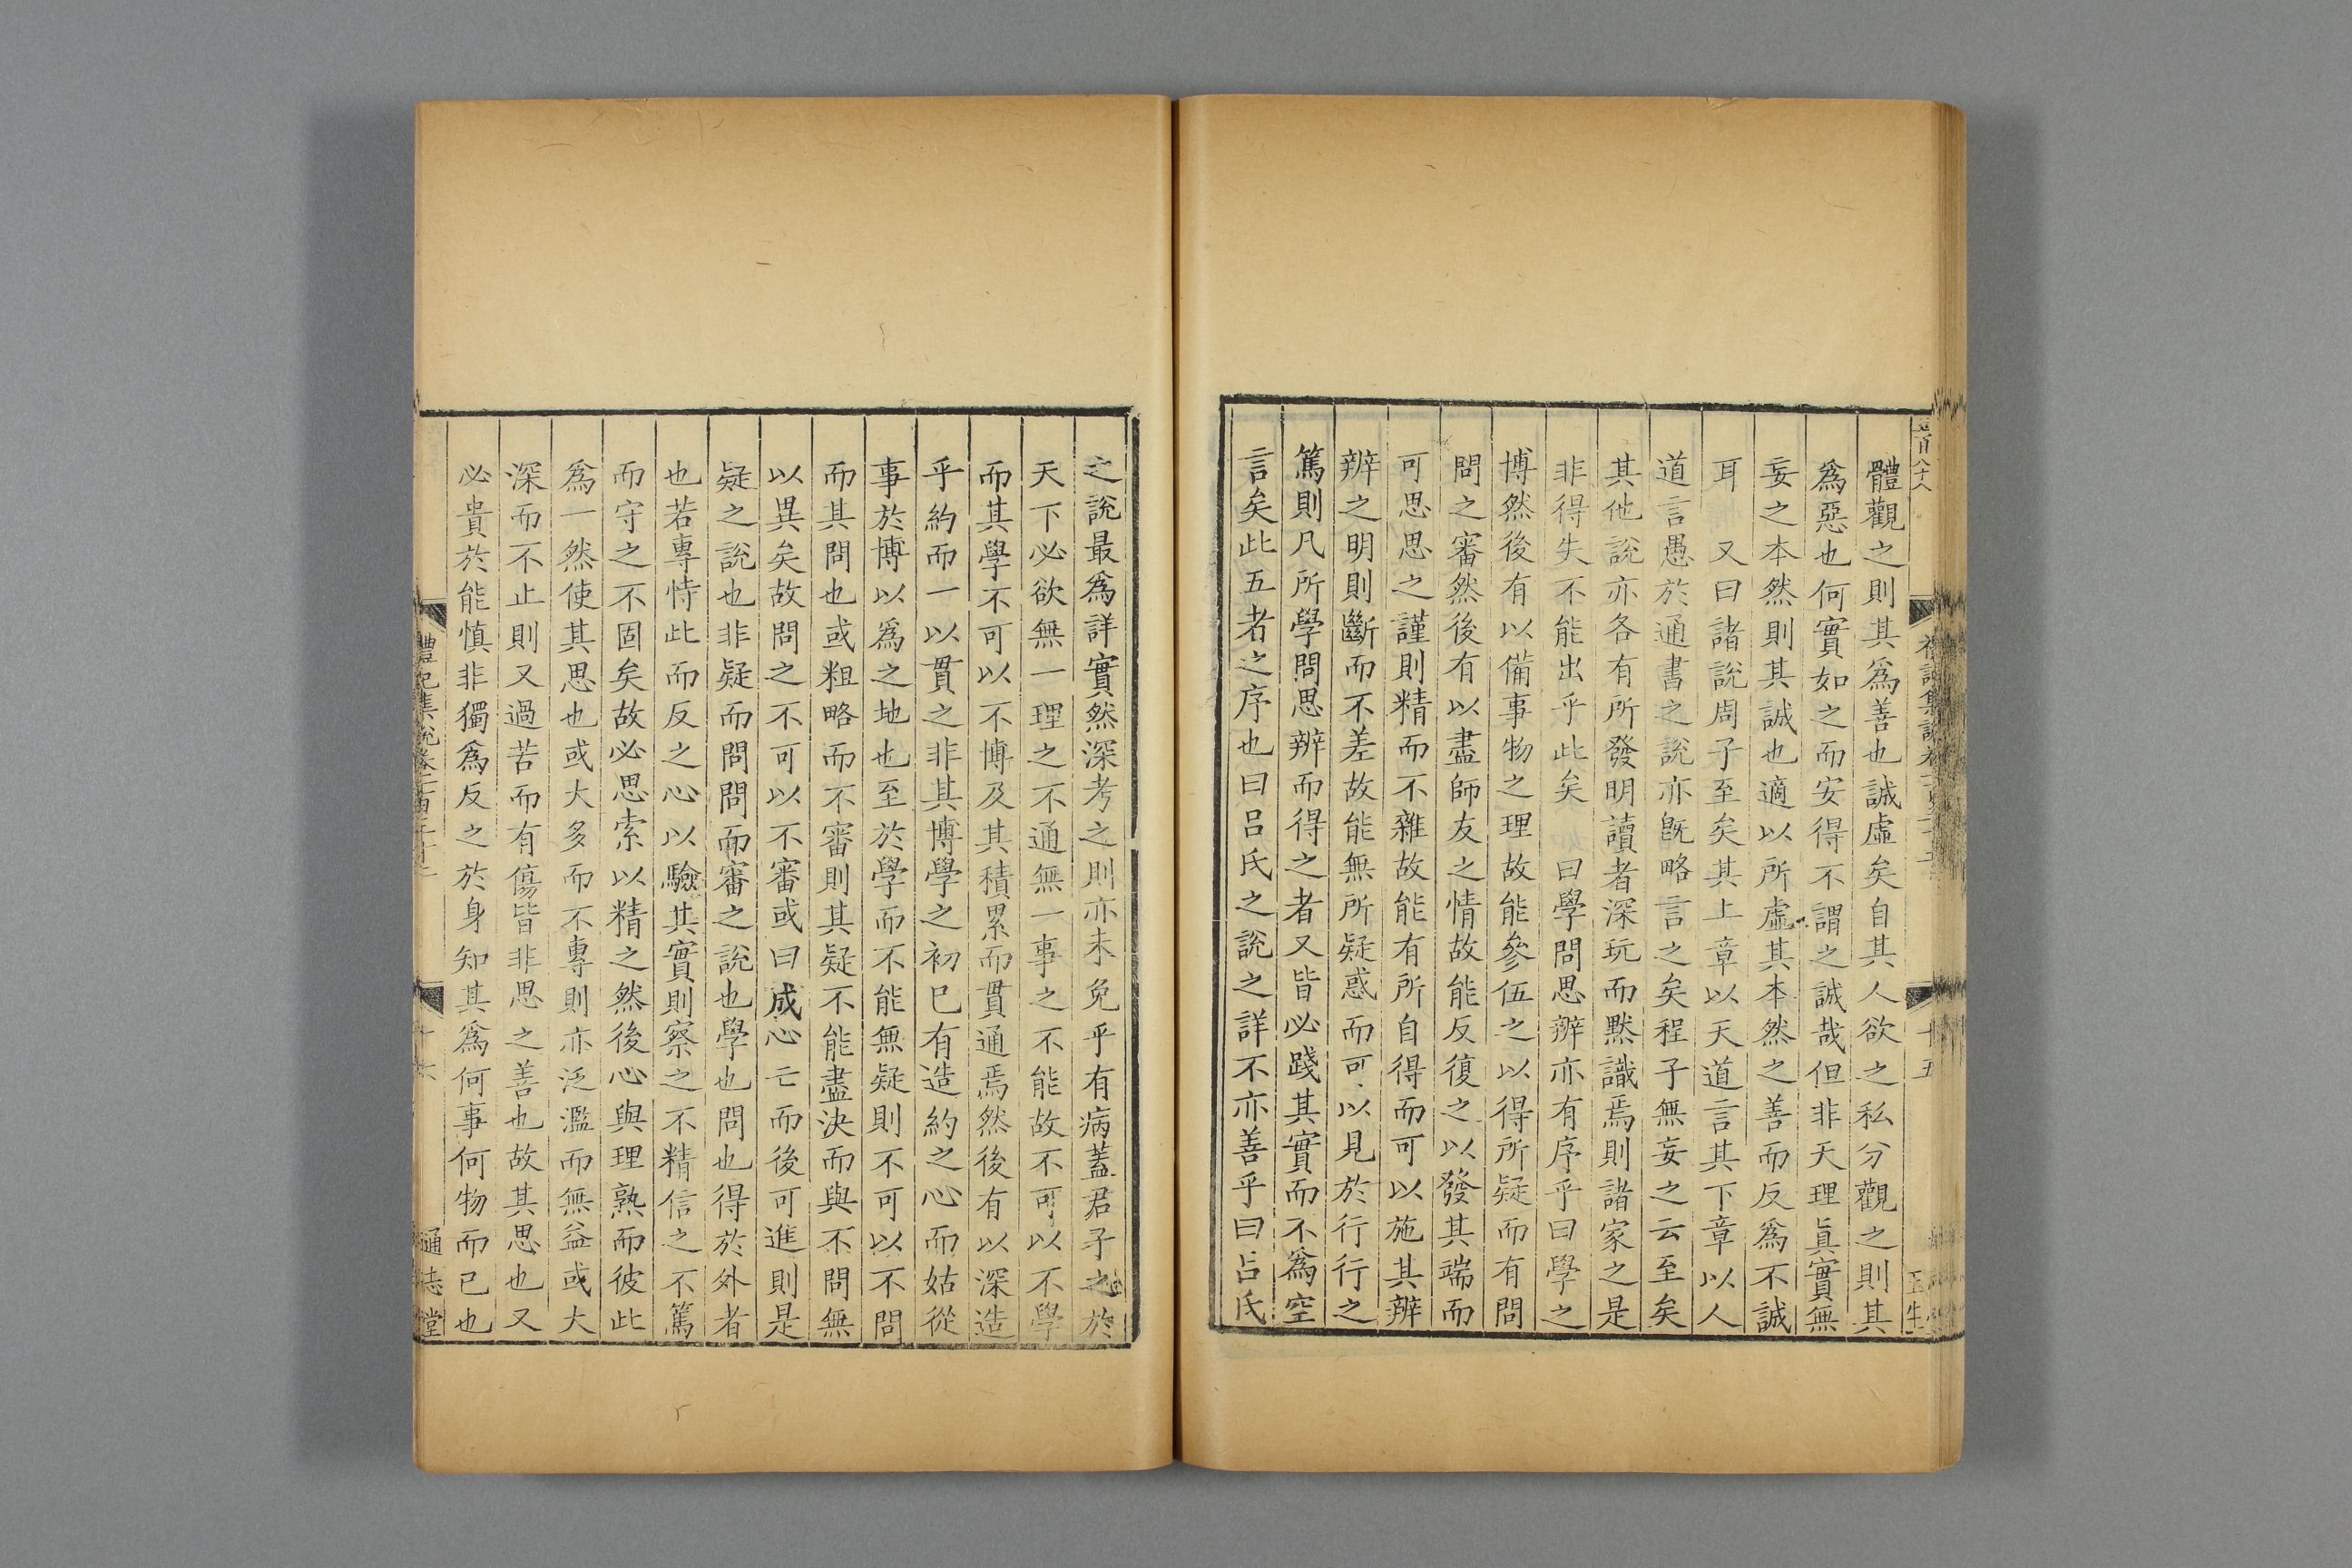 體觀之則其為善也誠虛矣自其人欲之私分觀之則其
為惡也何實如之而安得不謂之誠哉但非天理眞實無
妄之本然則其誠也適以所虛其本然之善而反為不誠
耳　又曰諸說周子至矣其上章以天道言其下章以人
道言愚於通書之說亦旣略言之矣程子無妄之云至矣
其他說亦各有所發明讀者深玩而默識焉則諸家之是
非得失不能出乎此矣　曰學問思辨亦有序乎曰學之
博然後有以備事物之理故能參伍之以得所疑而有問
問之審然後有以盡師友之情故能反復之以發其端而
可思思之謹則精而不雜故能有所自得而可以施其辨
辨之明則斷而不差故能無所疑惑而可以見於行行之
篤則凡所學問思辨而得之者又皆必踐其實而不為空
言矣此五者之序也曰呂氏之說之詳不亦善乎曰呂氏
之說最為詳實然深考之則亦未免乎有病蓋君子之於
天下必欲無一理之不通無一事之不能故不可以不學
而其學不可以不博及其積累而貫通焉然後有以深造
乎約而一以貫之非其博學之初已有造約之心而姑從
事於博以為之地也至於學而不能無疑則不可以不問
而其問也或粗略而不審則其疑不能盡決而與不問無
以異矣故問之不可以不審或曰成心亡而後可進則是
疑之說也非疑而問問而審之說也學也問也得於外者
也若專恃此而反之心以驗其實則察之不精信之不篤
而守之不固矣故必思索以精之然後心與理熟而彼此
為一然使其思也或大多而不專則亦泛濫而無益或大
深而不止則又過苦而有傷皆非思之善也故其思也又
必貴於能慎非獨為反之於身知其為何事何物而已也
十六
通志堂